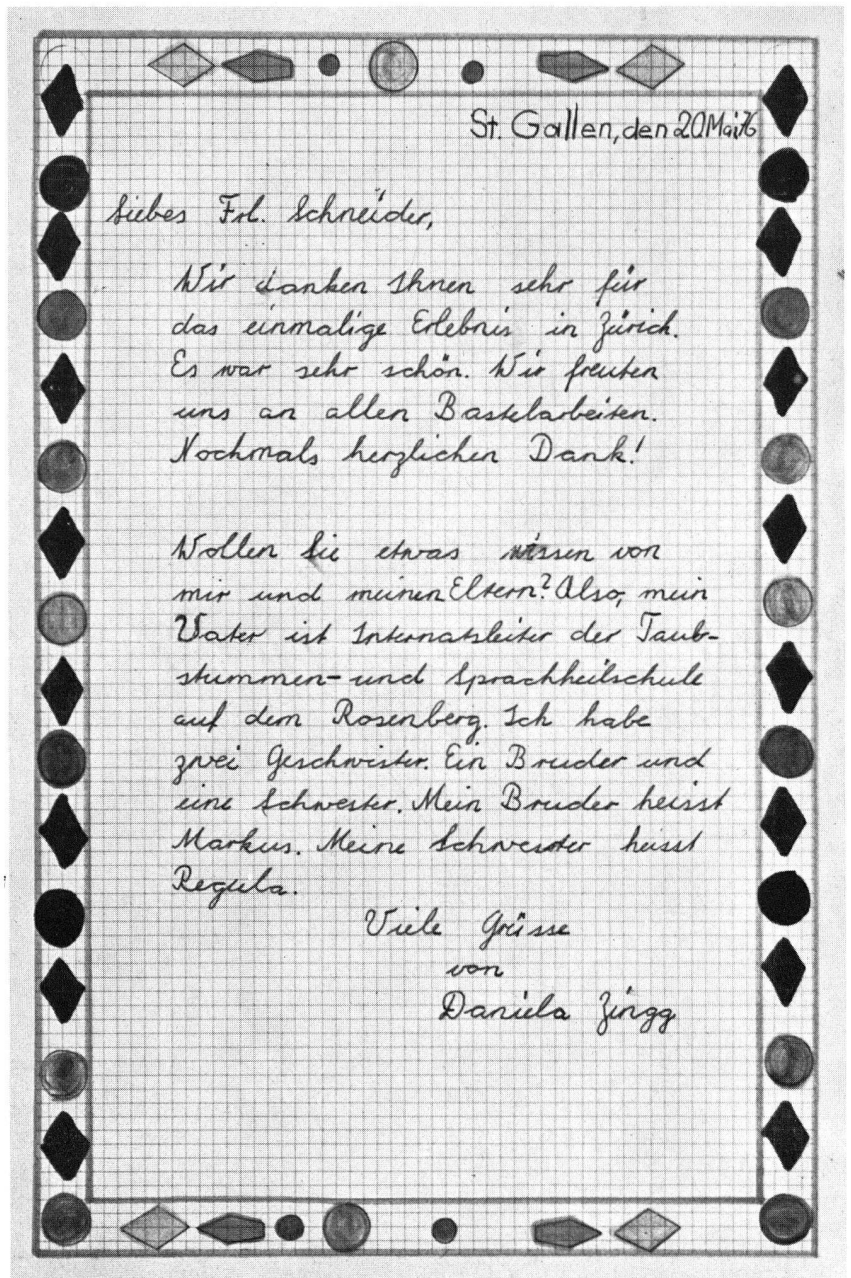 St. Gallen, den 20. Mai 76
Liebes Frl. Schneider,
Wir danken Ihnen sehr für
das einmalige Erlebnis in Zürich.
Es war sehr schön. Wir freuten
uns an allen Bastelarbeiten.
Nochmals herzlichen Dank!
Wollen Sie etwas wissen von
mir und meinen Eltern? Also, mein
Vater ist Internatsleiter der Taub-
stummen- und Sprachheilschule
auf dem Rosenberg. Ich habe
zwei Geschwister. Ein Bruder und
eine Schwester. Mein Bruder heisst
Markus. Meine Schwester heisst
Regula.
Viele Grüsse
von
Daniela Zingg